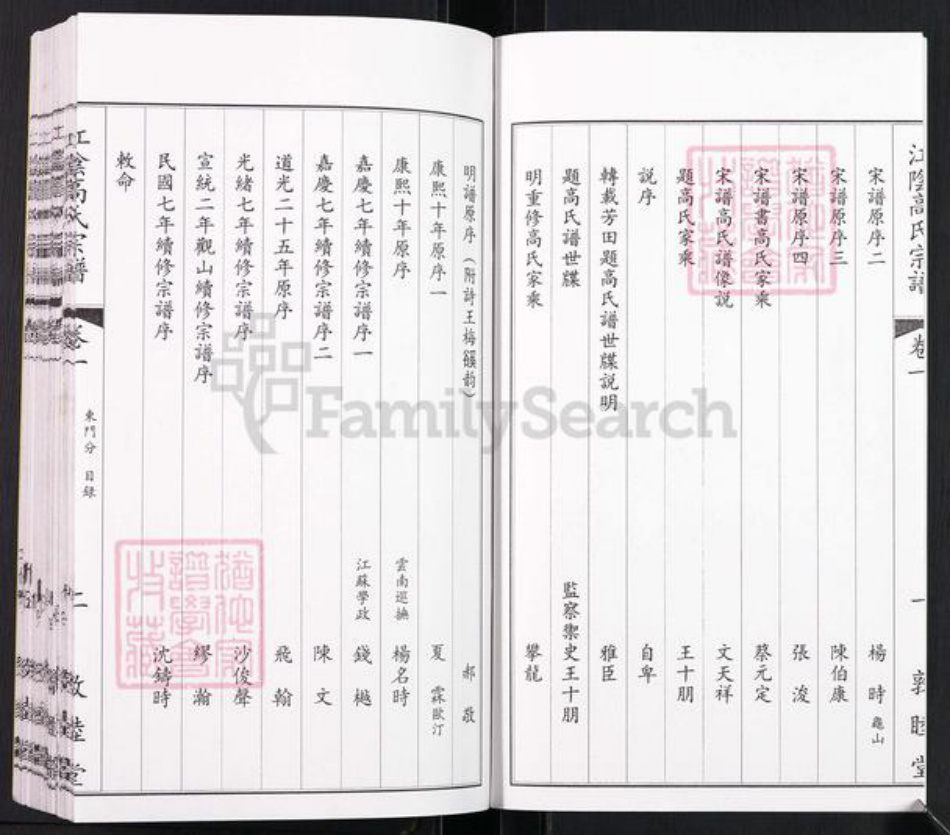 江陰高氏宗譜 卷一 一 敦睦堂
宋譜原序二 楊時 龜山
宋譜原序三 陳伯康
宋譜原序四 張浚
宋譜書高氏家乘 蔡元定
宋譜高氏譜像説 文天祥
題高氏家乘 王十朋
説序 自卑
轉載芳田題高氏譜世牒説明 雅臣
題高氏譜世牒 監察禦史王十朋
明重修高氏家乘 攀龍
明譜原序（附詩王梅饌韵） 郝敬
康熙十年原序一 夏霖歐汀
康熙十年原序 雲南巡撫 楊名時
嘉慶七年續修宗譜序一 江蘇學政 錢樾
嘉慶七年續修宗譜序二 陳文
道光二十五年原序 飛翰
光緒七年續修宗譜序 沙俊聲
宣統二年觀山續修宗譜序 繆瀚
民國七年續修宗譜序 沈鑄時
敕命
江陰高氏宗譜 卷一 東門分 目録 二 敦睦堂
FamilySearch